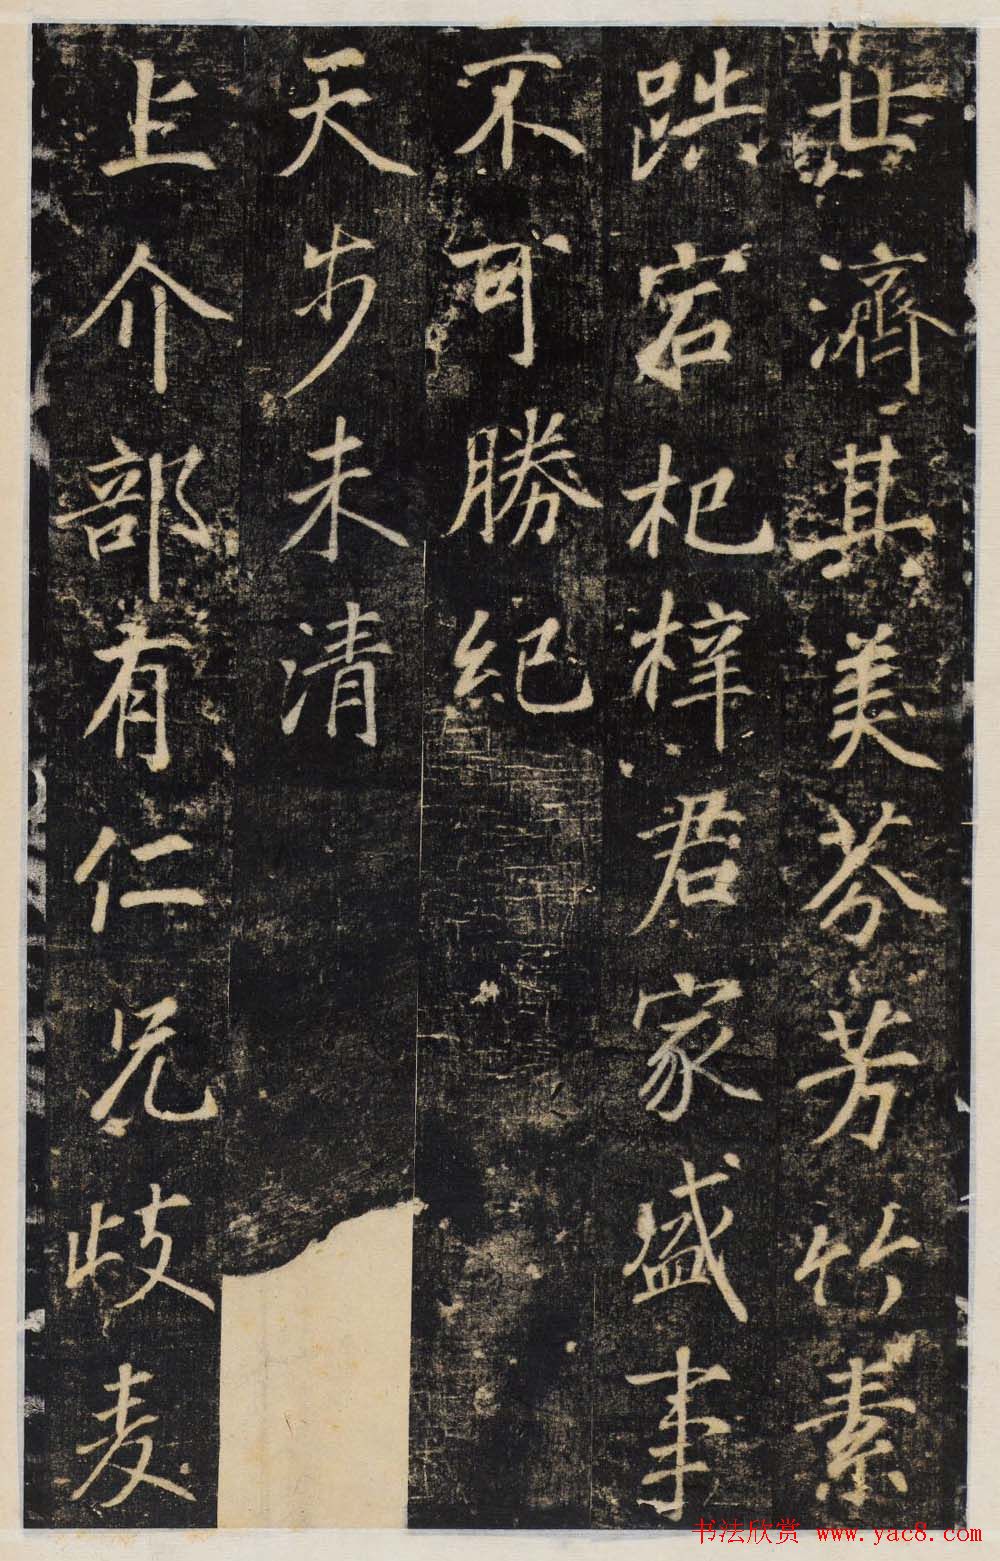 世濟其美芬芳竹素
宕杞梓君家盛事
不可勝紀
天步未清
上介部有仁兄歧麦
书法欣赏 www.yac8.com